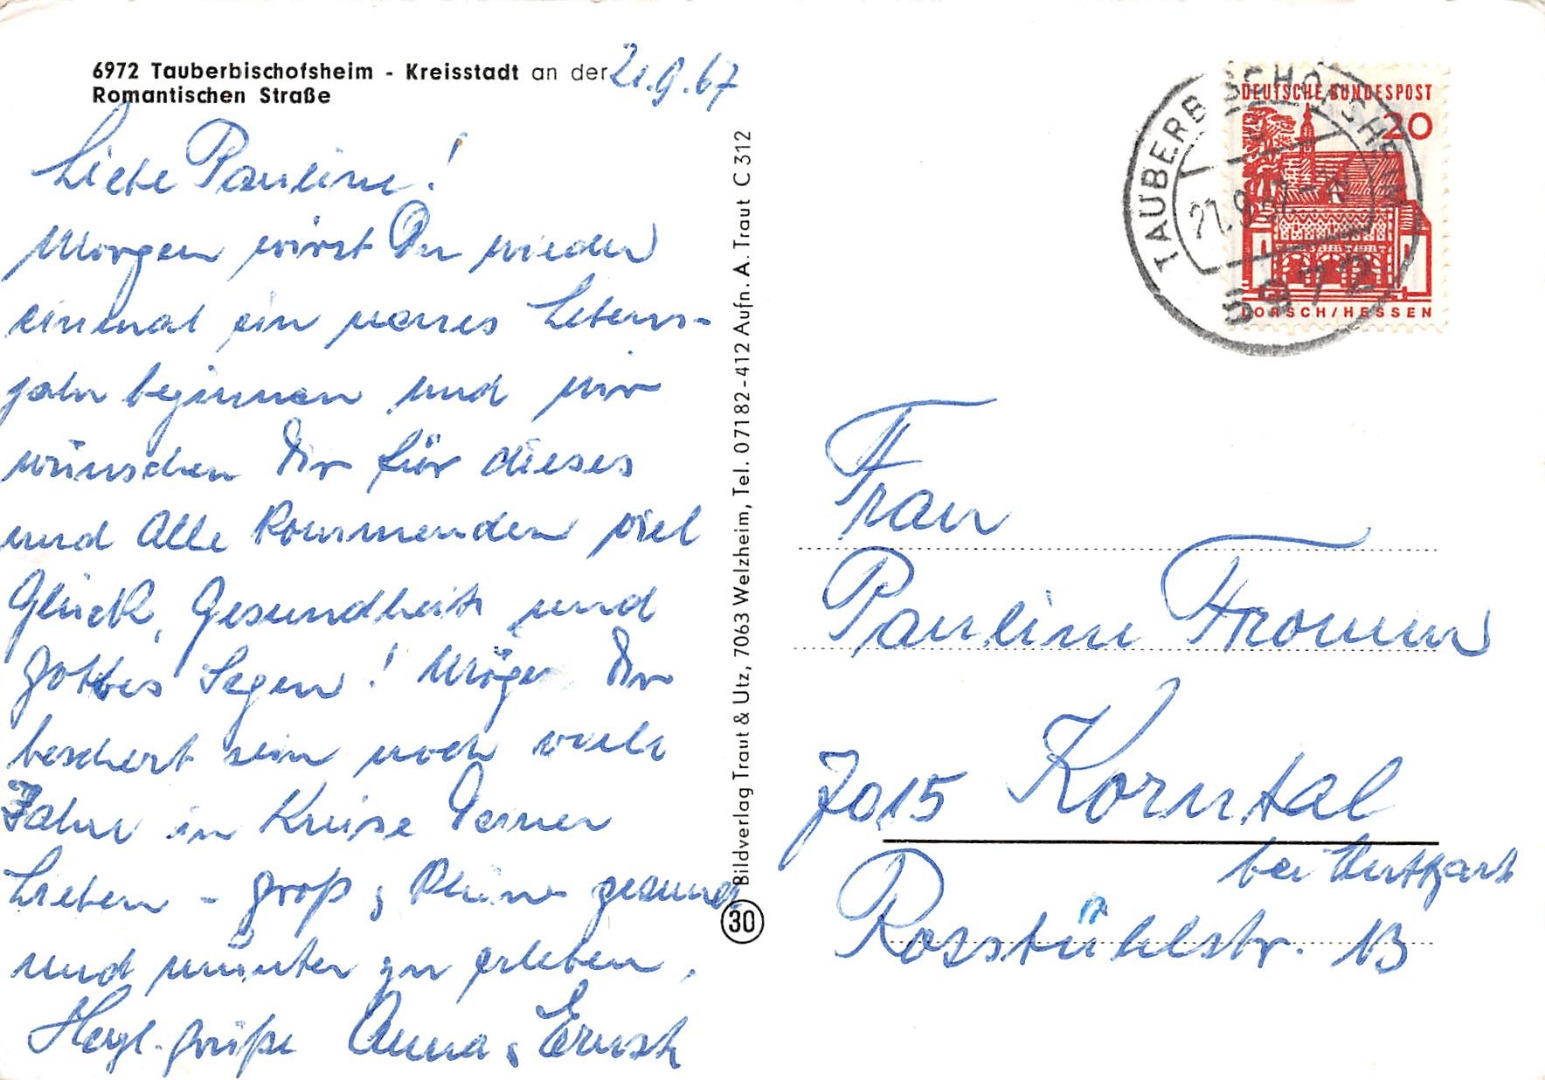 6972 Tauberbischofsheim - Kreisstadt an der
Romantischen Straße
21.9.67
Liebe Pauline!
Morgen wirst Du wieder
einmal ein neues Lebens-
jahr beginnen und wir
wünschen Dir für dieses
und alle Kommenden viel
Glück, Gesundheit und
Gottes Segen! Möge Dir
beschert sein noch viele
Jahre im Kreise Deiner
Lieben - groß & Kleine gesund
und munter zu erleben.
Herzl. Grüße Anna & Ernst
Bildverlag Traut & Utz, 7063 Welzheim, Tel. 07182-412 Aufn. A. Traut C 312
30
TAUBERBISCHOFSHEIM
21.9.67
6972
DEUTSCHE BUNDESPOST
20
LORSCH/HESSEN
Frau
Pauline Fromm
7015 Korntal
bei Stuttgart
Rosstühlstr. 13